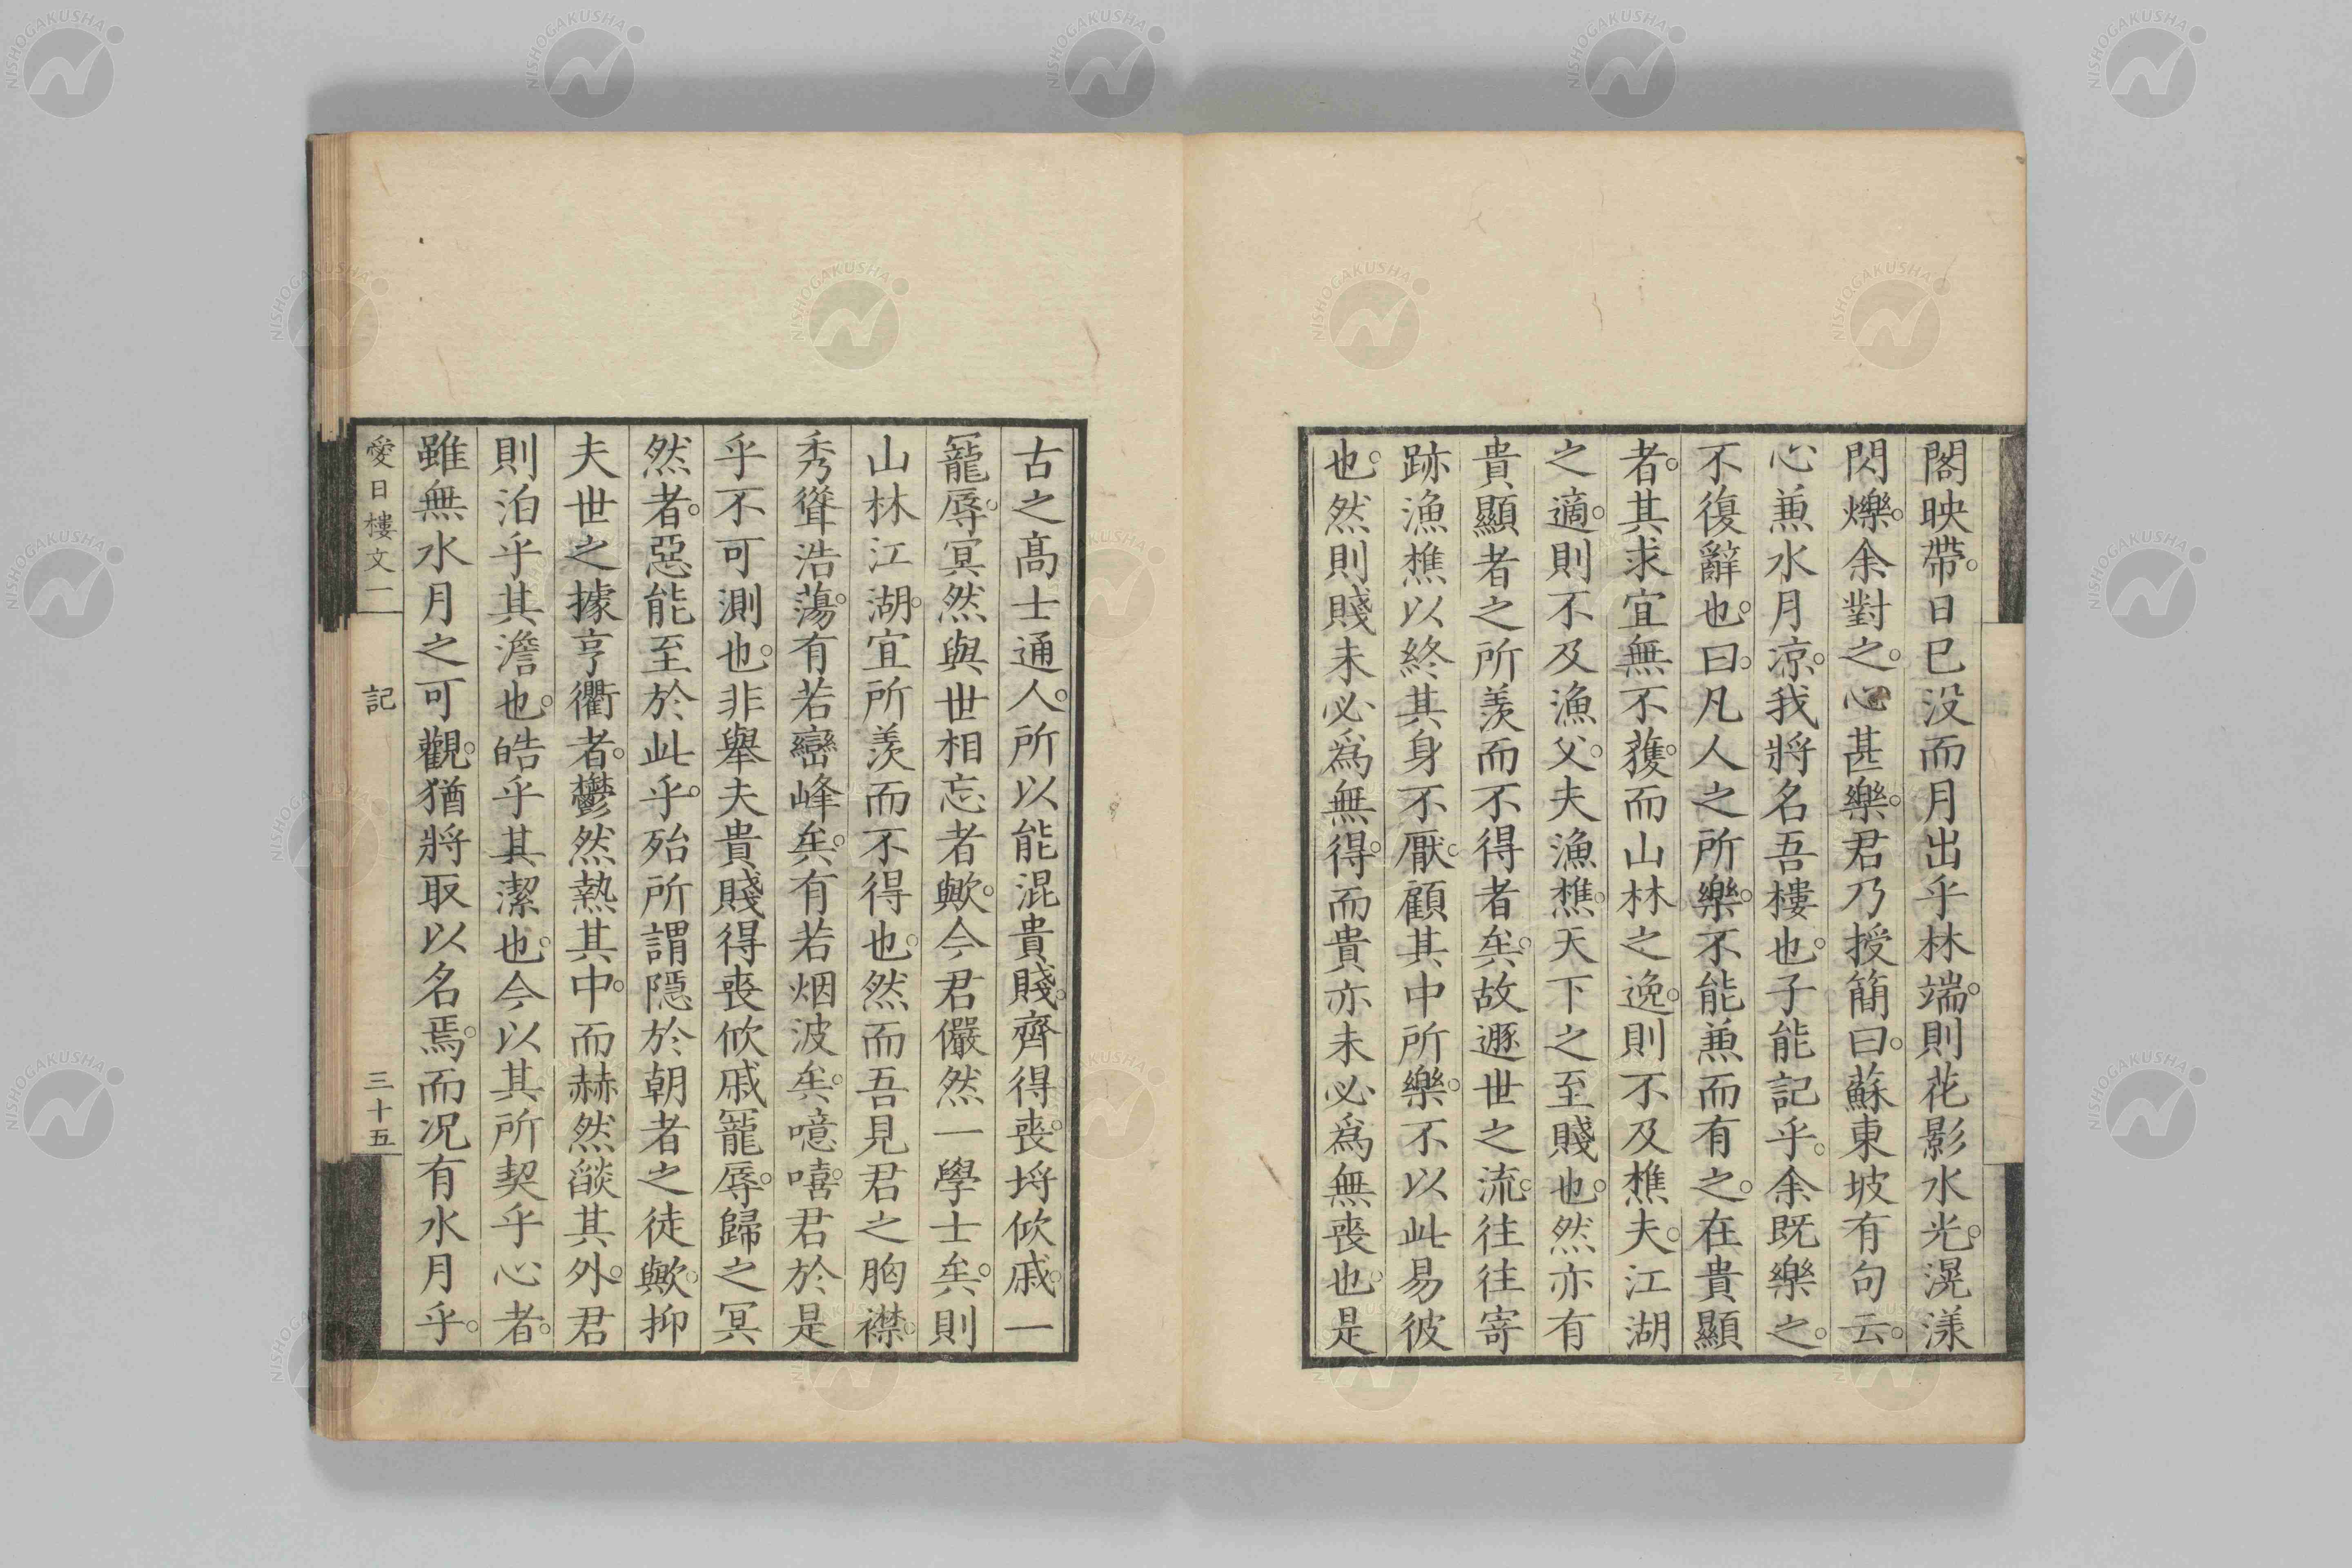 閣映帶。日已没而月出乎林端。則花影水光。滉漾
閃爍。余對之。心甚樂。君乃授簡曰。蘇東坡有句云。
心兼水月凉。我將名吾樓也。子能記乎。余既樂之。
不復辭也。曰。凡人之所樂。不能兼而有之。在貴顯
者。其求宜無不獲。而山林之逸。則不及樵夫。江湖
之適。則不及漁父。夫漁樵。天下之至賤也。然亦有
貴顯者之所羨而不得者矣。故遯世之流。往往寄
跡漁樵以終其身不厭。顧其中所樂。不以此易彼
也。然則賤未必爲無得。而貴亦未必爲無喪也。是
古之髙士通人。所以能混貴賤。齊得喪。埒佽戚。一
寵辱。冥然與世相忘者歟。今君儼然一學士矣。則
山林江湖。宜所羨而不得也。然而吾見君之胸襟。
秀聳浩蕩。有若巒峰矣。有若烟波矣。噫嘻。君於是
乎不可測也。非舉夫貴賤得喪佽戚寵辱。歸之冥
然者。惡能至於此乎。殆所謂隱於朝者之徒歟。抑
夫世之據亨衢者。鬱然熱其中。而赫然燄其外。君
則泊乎其澹也。皓乎其潔也。今以其所契乎心者。
雖無水月之可觀。猶將取以名焉。而况有水月乎。
愛日樓文二 記 三十五
NISHOGAKUSHA